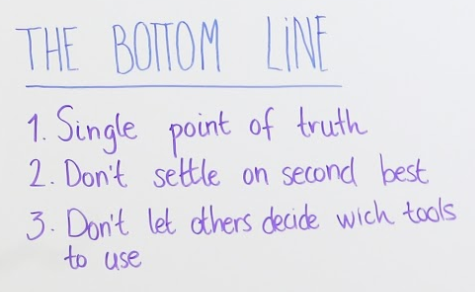 THE BOTTOM LINE
1. Single point of truth
2. Don't settle on second best
3. Don't let others decide wich tools
to use